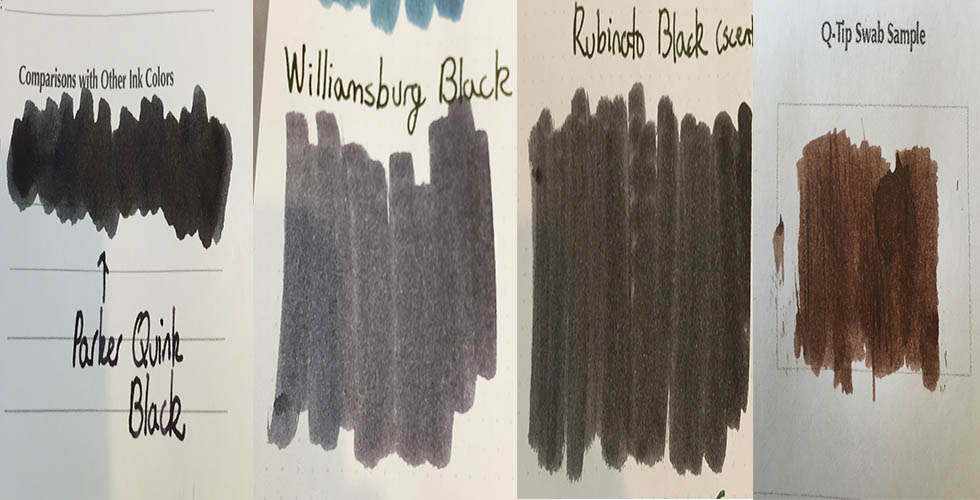 Comparisons with Other Ink Colors
Parker Quink
Black
Williamsburg Black
Rubinato Black (scen
Q-Tip Swab Sample